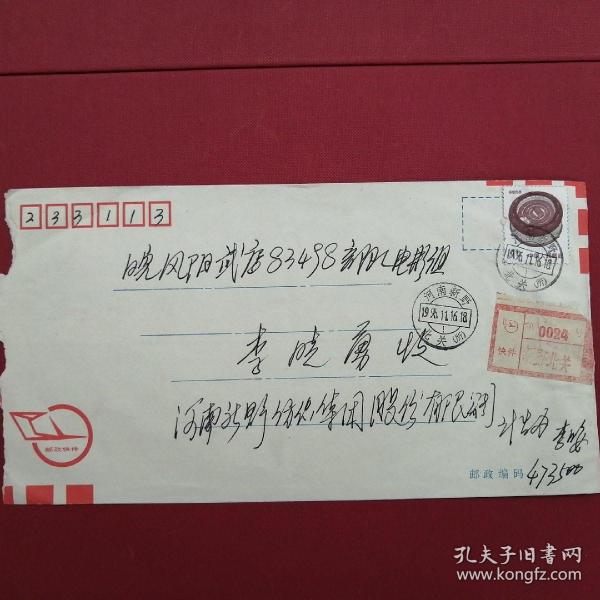 233113
皖凤阳武店83498部队电影组
河南新野
1996.11.16.18
北关(所)
李晓勇收
0024
快件
河南新野纺织集团股份有限公司
计生办 李
邮政快件
邮政编码 473500
孔夫子旧书网
www.kongfz.com